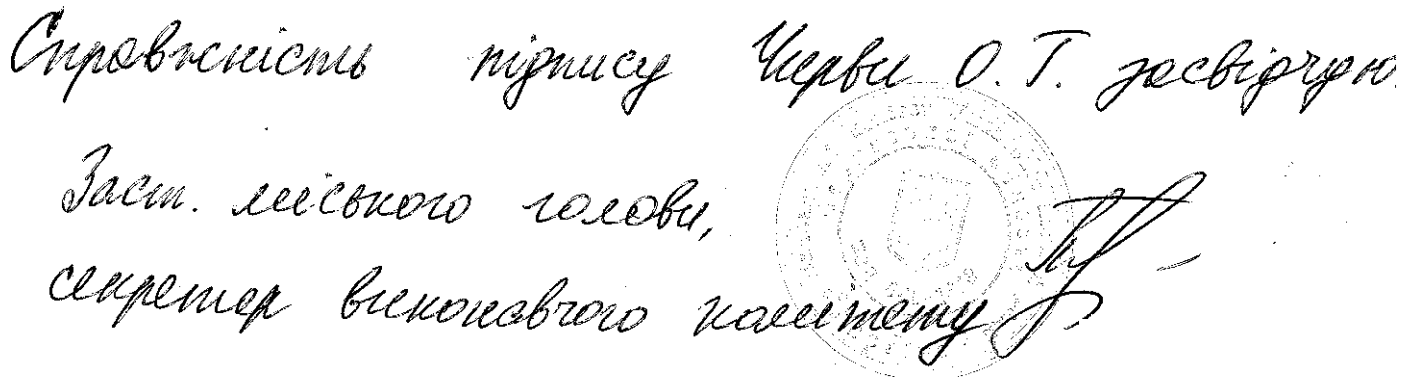 Справжність підпису Черви О. Г. засвідчую.
Заст. міського голови,
секретар виконавчого комітету